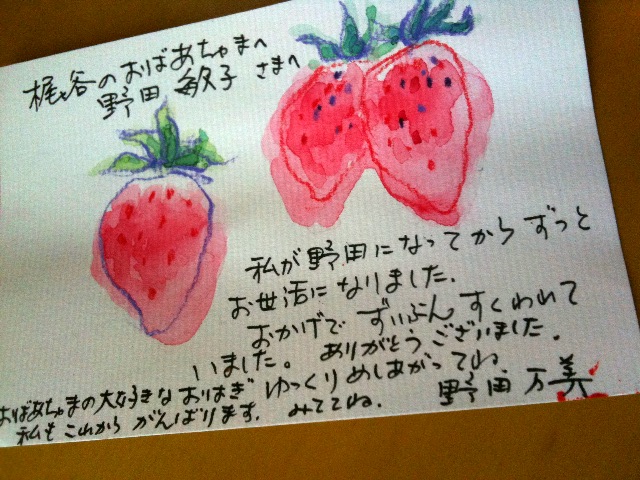 梶谷のおばあちゃまへ
野田 敏子 さまへ
私が野田になってからずっと
お世話になりました.
おかげで ずいぶん すくわれて
いました。 ありがとうございました.
おばあちゃまの大好きな おはぎ ゆっくりめしあがってね
私もこれから がんばります. みててね.
野田 万美